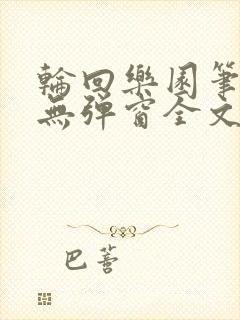 輪回樂園筆
無彈窗全文
巴蒼